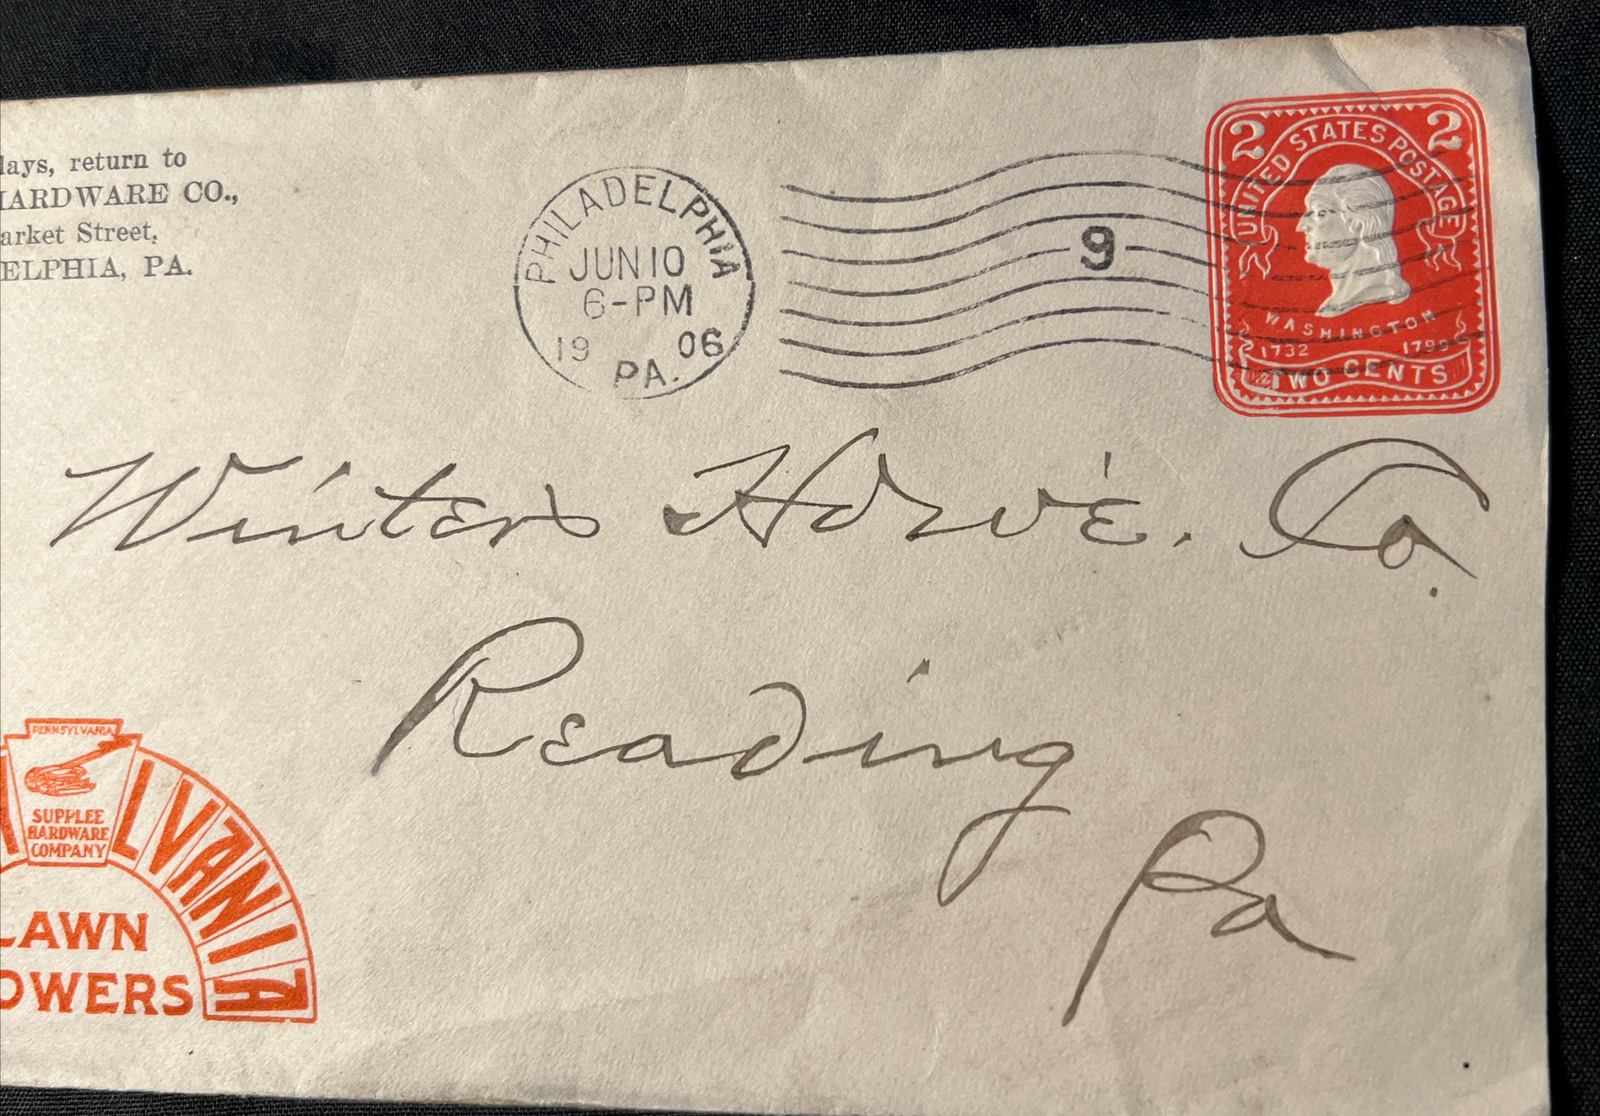 days, return to
HARDWARE CO.,
arket Street,
ELPHIA, PA.
PHILADELPHIA
JUN 10
6-PM
19 06
PA.
9
2 2
UNITED STATES POSTAGE
WASHINGTON
1732 1799
TWO CENTS
Winters Hdw'e. Co.
Reading
Pa
PENNSYLVANIA
SUPPLEE
HARDWARE
COMPANY
LVANIA
LAWN
OWERS